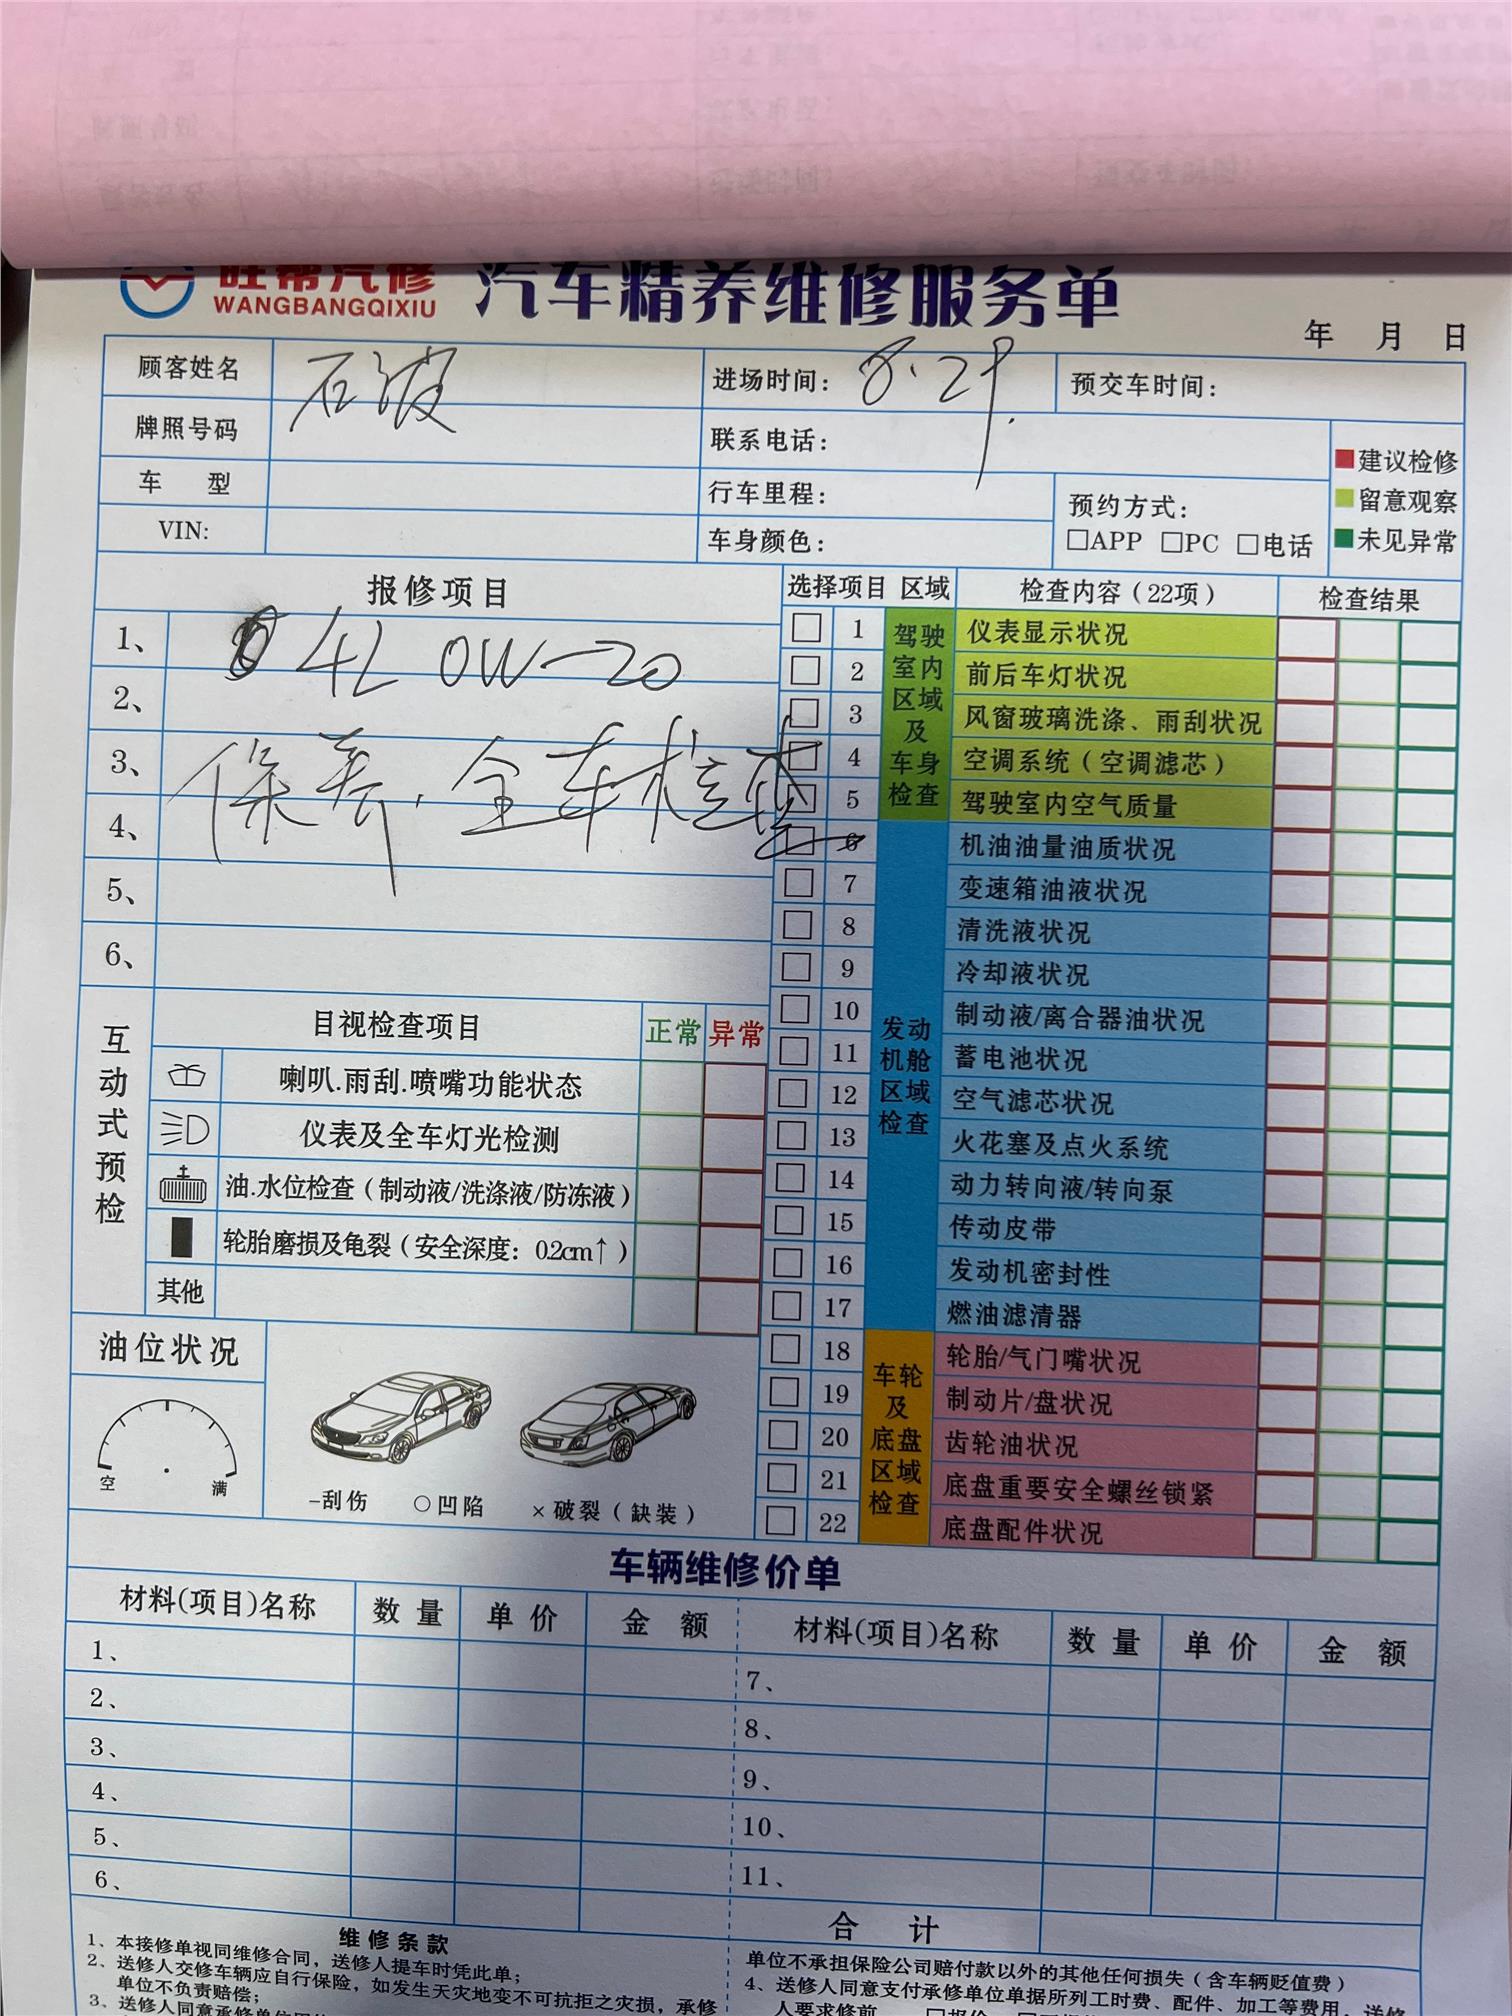 旺帮汽修
WANGBANGQIXIU
汽车精养维修服务单
年 月 日
顾客姓名 石波 进场时间: 8.29. 预交车时间:
牌照号码 联系电话:
车 型 行车里程: 预约方式:
VIN: 车身颜色: □APP □PC □电话
建议检修
留意观察
未见异常
报修项目
1、 4L 0W-20
2、
3、 保养.全车检查
4、
5、
6、
选择项目 区域 检查内容(22项) 检查结果
驾驶室内区域及车身检查
1 仪表显示状况
2 前后车灯状况
3 风窗玻璃洗涤、雨刮状况
4 空调系统(空调滤芯)
5 驾驶室内空气质量
发动机舱区域检查
6 机油油量油质状况
7 变速箱油液状况
8 清洗液状况
9 冷却液状况
10 制动液/离合器油状况
11 蓄电池状况
12 空气滤芯状况
13 火花塞及点火系统
14 动力转向液/转向泵
15 传动皮带
16 发动机密封性
17 燃油滤清器
车轮及底盘区域检查
18 轮胎/气门嘴状况
19 制动片/盘状况
20 齿轮油状况
21 底盘重要安全螺丝锁紧
22 底盘配件状况
互动式预检
目视检查项目 正常 异常
喇叭.雨刮.喷嘴功能状态
仪表及全车灯光检测
油.水位检查(制动液/洗涤液/防冻液)
轮胎磨损及龟裂(安全深度: 0.2cm↑)
其他
油位状况
空 满
-刮伤 ○凹陷 ×破裂(缺装)
车辆维修价单
材料(项目)名称 数量 单价 金 额 材料(项目)名称 数量 单价 金 额
1、 7、
2、 8、
3、 9、
4、 10、
5、 11、
6、 合 计
维修条款
1、本接修单视同维修合同，送修人提车时凭此单；
2、送修人交修车辆应自行保险，如发生天灾地变不可抗拒之灾损，承修
单位不负责赔偿；
3、送修人同意承修单位
单位不承担保险公司赔付款以外的其他任何损失(含车辆贬值费)
4、送修人同意支付承修单位单据所列工时费、配件、加工等费用；送修
人要求修前